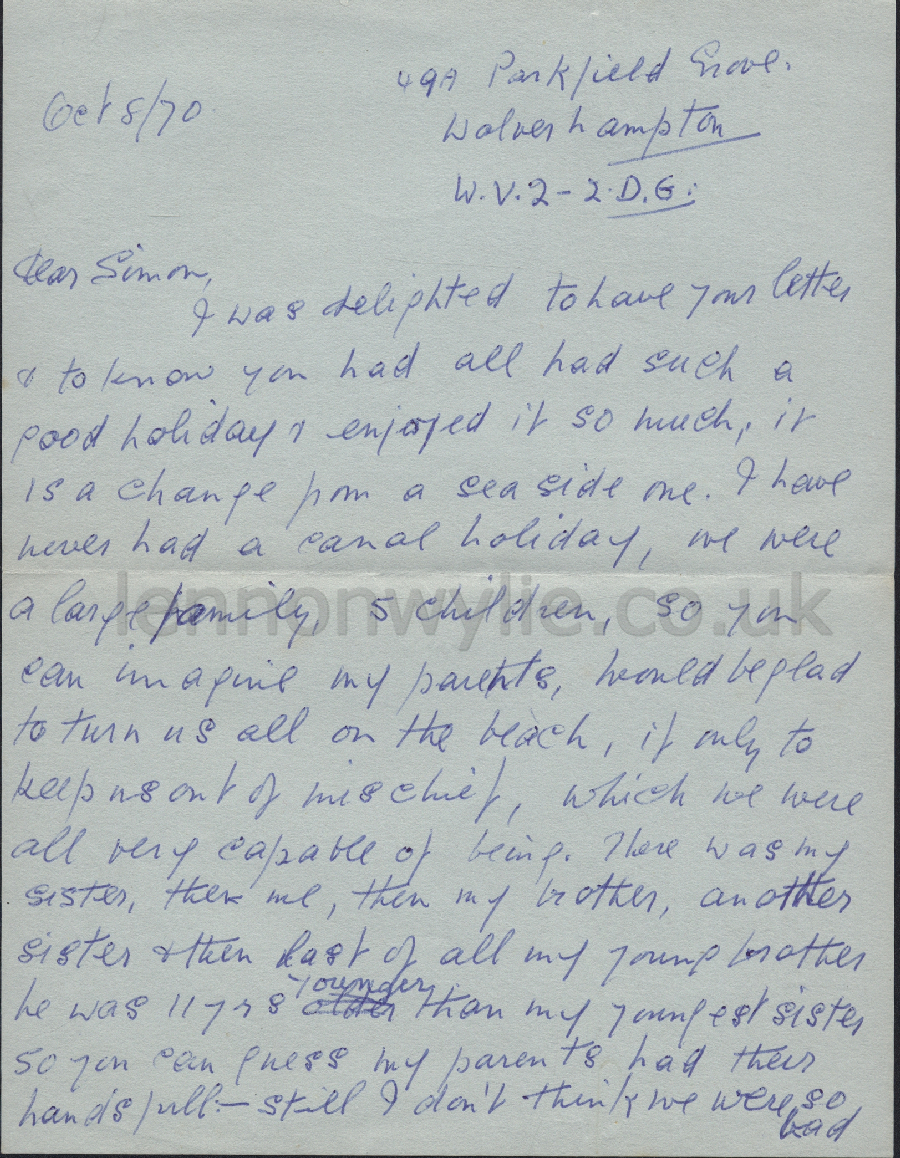 49A Parkfield Grove.
Oct 8/70
Wolverhampton
W.V.2-2.D.G.
Dear Simon,
I was delighted to have your letter
& to know you had all had such a
good holiday & enjoyed it so much, it
is a change from a sea side one. I have
never had a canal holiday, we were
lennonwylie.co.uk
a large family, 5 children, so you
can imagine my parents, would be glad
to turn us all on the beach, if only to
keep us out of mischief, which we were
all very capable of being. There was my
sister, then me, then my brother, another
sister & then last of all my young brother
he was 11 yrs older younger than my youngest sister
so you can guess my parents had their
hands full - still I don't think we were so
bad